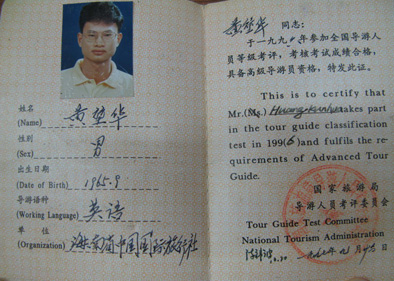 姓名
(Name) 黄 华
性别
(Sex) 男
出生日期
(Date of Birth) 1965.9
导游语种
(Working Language) 英语
单 位
(Organization) 海南省中国国际旅行社
黄 华 同志:
于一九九 年参加全国导游人
员等级考评,考核考试成绩合格,
具备高级导游员资格,特发此证。
This is to certify that
Mr.(Ms.) takes part
in the tour guide classification
test in 199(6) and fulfils the re-
quirements of Advanced Tour
Guide.
国家旅游局
导游人员考评委员会
Tour Guide Test Committee
National Tourism Administration